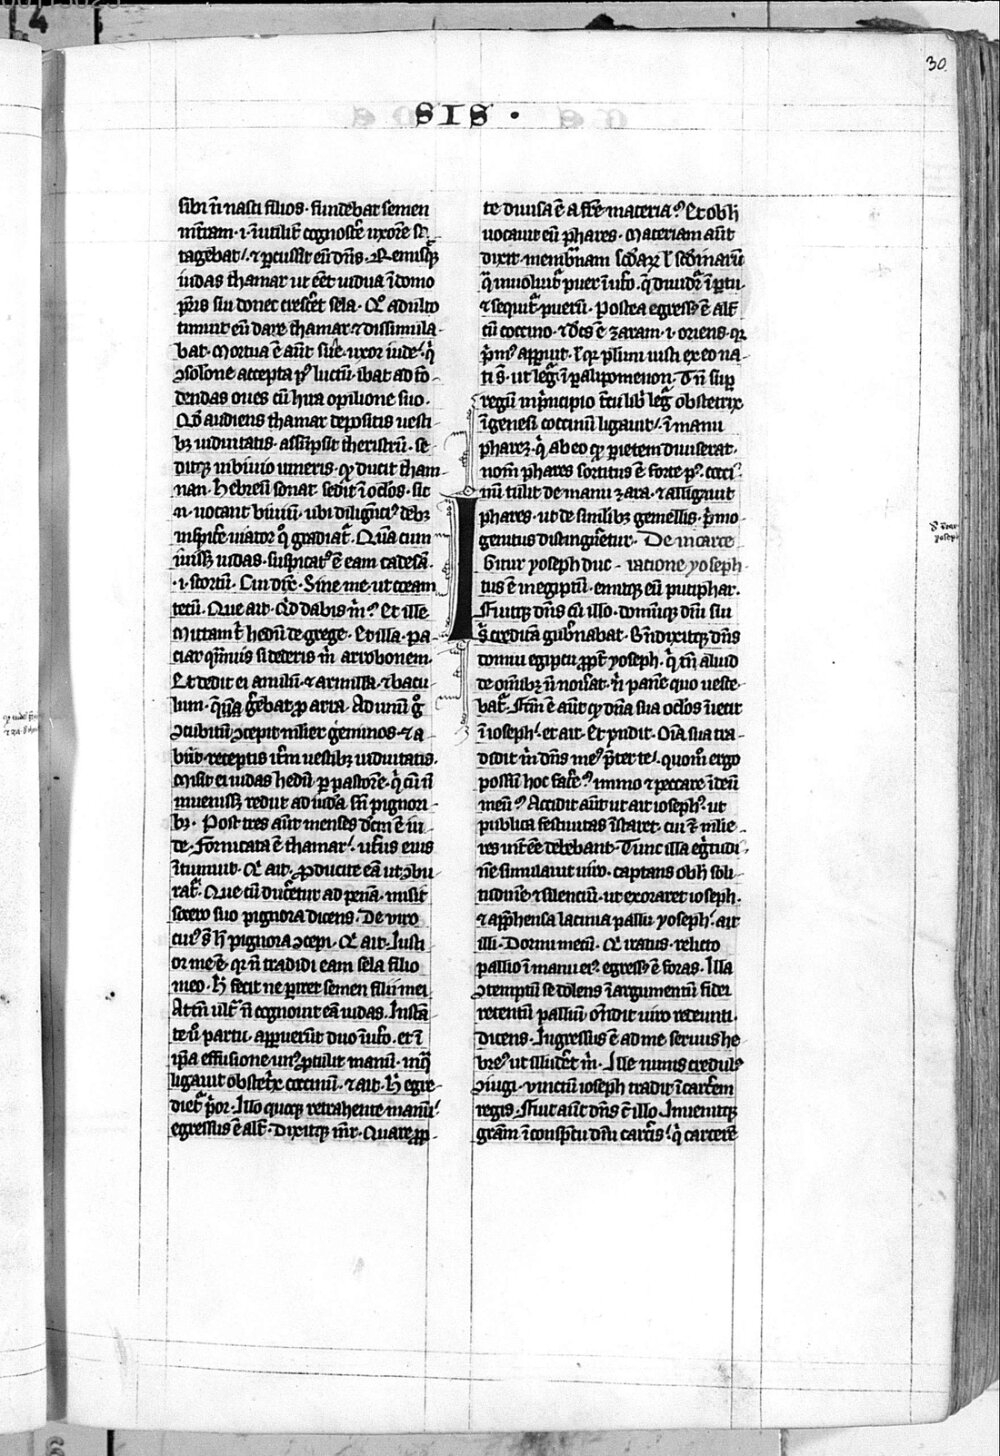 30
SIS ·
sibi ñ nasci filios · fundebat semen
in t̃ram · i · ĩutilit̃ cognosc̃e uxorẽ
tagebat · ⁊ ꝑcussit eũ dñs · Remisitqꝫ
iudas thamar ut eẽt uidua ĩ domo
pr̃is sui donec cresc̃et sela · adulto
timuit eũ dare thamar ⁊ dissimula-
bat · Mortua ẽ aũt uxor iude · q̇
ꝯsolõne accepta pꝰ luctũ · ibat ad tõ-
dendas oues cũ hira opilione suo ·
Qd̃ audiens thamar depositis uesti-
bꝫ uiduitatis · assũpsit theristrũ · se-
ditqꝫ in biuio itineris · qd̃ ducit tham-
nan · hebreũ sonat · sedit ĩ oc̃los · sic
n̄ uocant biuiũ · ubi diligẽciꝰ debꝫ
inspic̃e uiator q° gradiat̃ · Quã cum
uidissꝫ iudas · suspicatꝰ ẽ eam
· i · scortũ · Cui dix̃ · Sine me ut coeam
tecũ · Que ait · Qd̃ dabis m̃ · Et ille
Mittam t̃ hedũ de grege · Et illa · pa-
ciar qm̃uis si dederis m̃ arrobonem ·
Et dedit ei anulũ · ⁊ armillã · ⁊ bacu-
lum · Ad unũ g°
ꝯcubitũ ꝯcepit mulier geminos · ⁊ a-
biit · receptis it̃m uestibꝫ uiduitatis ·
Misit ei iudas hedũ ꝑ pastorẽ · q̇ cũ ñ
inuenissꝫ rediit ad iudã pignori-
bꝫ · Post tres aũt menses dc̃m ẽ iu-
de · Fornicata ẽ thamar · ut̃us eius
ĩtumuit · ait · ꝓducite eã ut ꝯbu-
rat̃ · Que cũ duc̃etur ad penã · misit
socero suo pignora dicens · De uiro
cuiꝰ s̃ h̃ pignora ꝯcepi · ait · Justi-
or me ẽ · qr̃ ñ tradidi eam sela filio
meo · h̃ fecit ne ꝑiret semen filii mei
Attñ ult̃ ñ cognouit eã iudas · Instã-
te u° partu · apparuerũt duo ĩ ut̃o · et ĩ
ip̃a effusione unꝰ ꝓtulit manũ · in q̃
ligauit obstet̃x coccinũ · ⁊ ait · h̃ egre-
diet̃ p̃or · Illo quoqꝫ retrahente manũ
egressus ẽ alt̃ · Dixitqꝫ ml̃r · Quare ꝓp-
te diuisa ẽ a fr̃e maceria · Et ob h̃
uocauit eũ phares · Maceriam aũt
dixit · membr̃nam l̃ secũdinarũ
q̃ inuoluit̃ puer ĩ ut̃o · q̃ diuidit̃ ĩ ꝑtu
⁊ sequit̃ puerũ · Postea egressꝰ ẽ alt̃
cũ coccino · ⁊ dc̃s ẽ zaram · i · oriens · qr̃
p̃mꝰ apparuit · l̃ qr̃ pl̃imi iusti ex eo na-
ti s̃ · ut leg̃ ĩ paralipomenon · Tñ sup̃
regũ in p̃ncipio t̃cii lib̃ leg̃ obstetrix
ĩ genesi coccinũ ligauit ĩ manu
pharez · q̇ ab eo qd̃ parietem diuiserat ·
nom̃ phares sortitus ẽ forte pꝰ cocci-
nũ tulit de manu zara · ⁊ alligauit
phares · ut de similibꝫ gemellis · p̃mo-
genitus distingueretur · De incarce
Igitur yoseph duc- ratione yoseph ·
tus ẽ in egiptũ · emitqꝫ eũ putiphar ·
Fuitqꝫ dñs cũ illo · domũqꝫ dñi sui
s̃ creditã gub̃nabat · B̃ndixitqꝫ dñs
domui egiptii ꝓpt̃ yoseph · q̇ tñ aliud
de om̃ibꝫ ñ nou̾at · n̊ panẽ quo uesce-
bat̃ · Fc̃m ẽ aũt qd̃ dña sua oc̃los ĩiecit
ĩ ioseph · et ait · Et r̃ndit · Oĩa sua tra-
didit m̃ dñs meꝰ p̃ter te · quom̃ ergo
possũ hoc fac̃e immo ⁊ peccare ĩ deũ
meũ · Accidit aũt ut ait iosephꝰ · ut
publica festiuitas ĩstaret · cui ⁊ mulie-
res int̃eẽ debebant · Tunc illa eg̃tudi-
nẽ simulauit uiro · captans ob h̃ soli-
tudinẽ · ⁊ silencium · ut exoraret ioseph ·
⁊ app̃hensa lacinia pallii yoseph · ait
illi · Dormi mecũ · iratus · relicto
pallio ĩ manu eiꝰ egressꝰ ẽ foras · Illa
ꝯtemptũ se dolens ĩ argumentũ fidei
retentũ pallium · oñdit uiro redeunti ·
dicens · Ingressus ẽ ad me seruus he-
breꝰ ut illud̃et m̃ · Ille nimis credulꝰ
ꝯiugi · uinctũ ioseph tradit ĩ carc̃em
regis · Fuit aũt dñs cũ illo · Inuenitqꝫ
gr̃am ĩ conspc̃u dñi carc̃is · q̇ carcerẽ